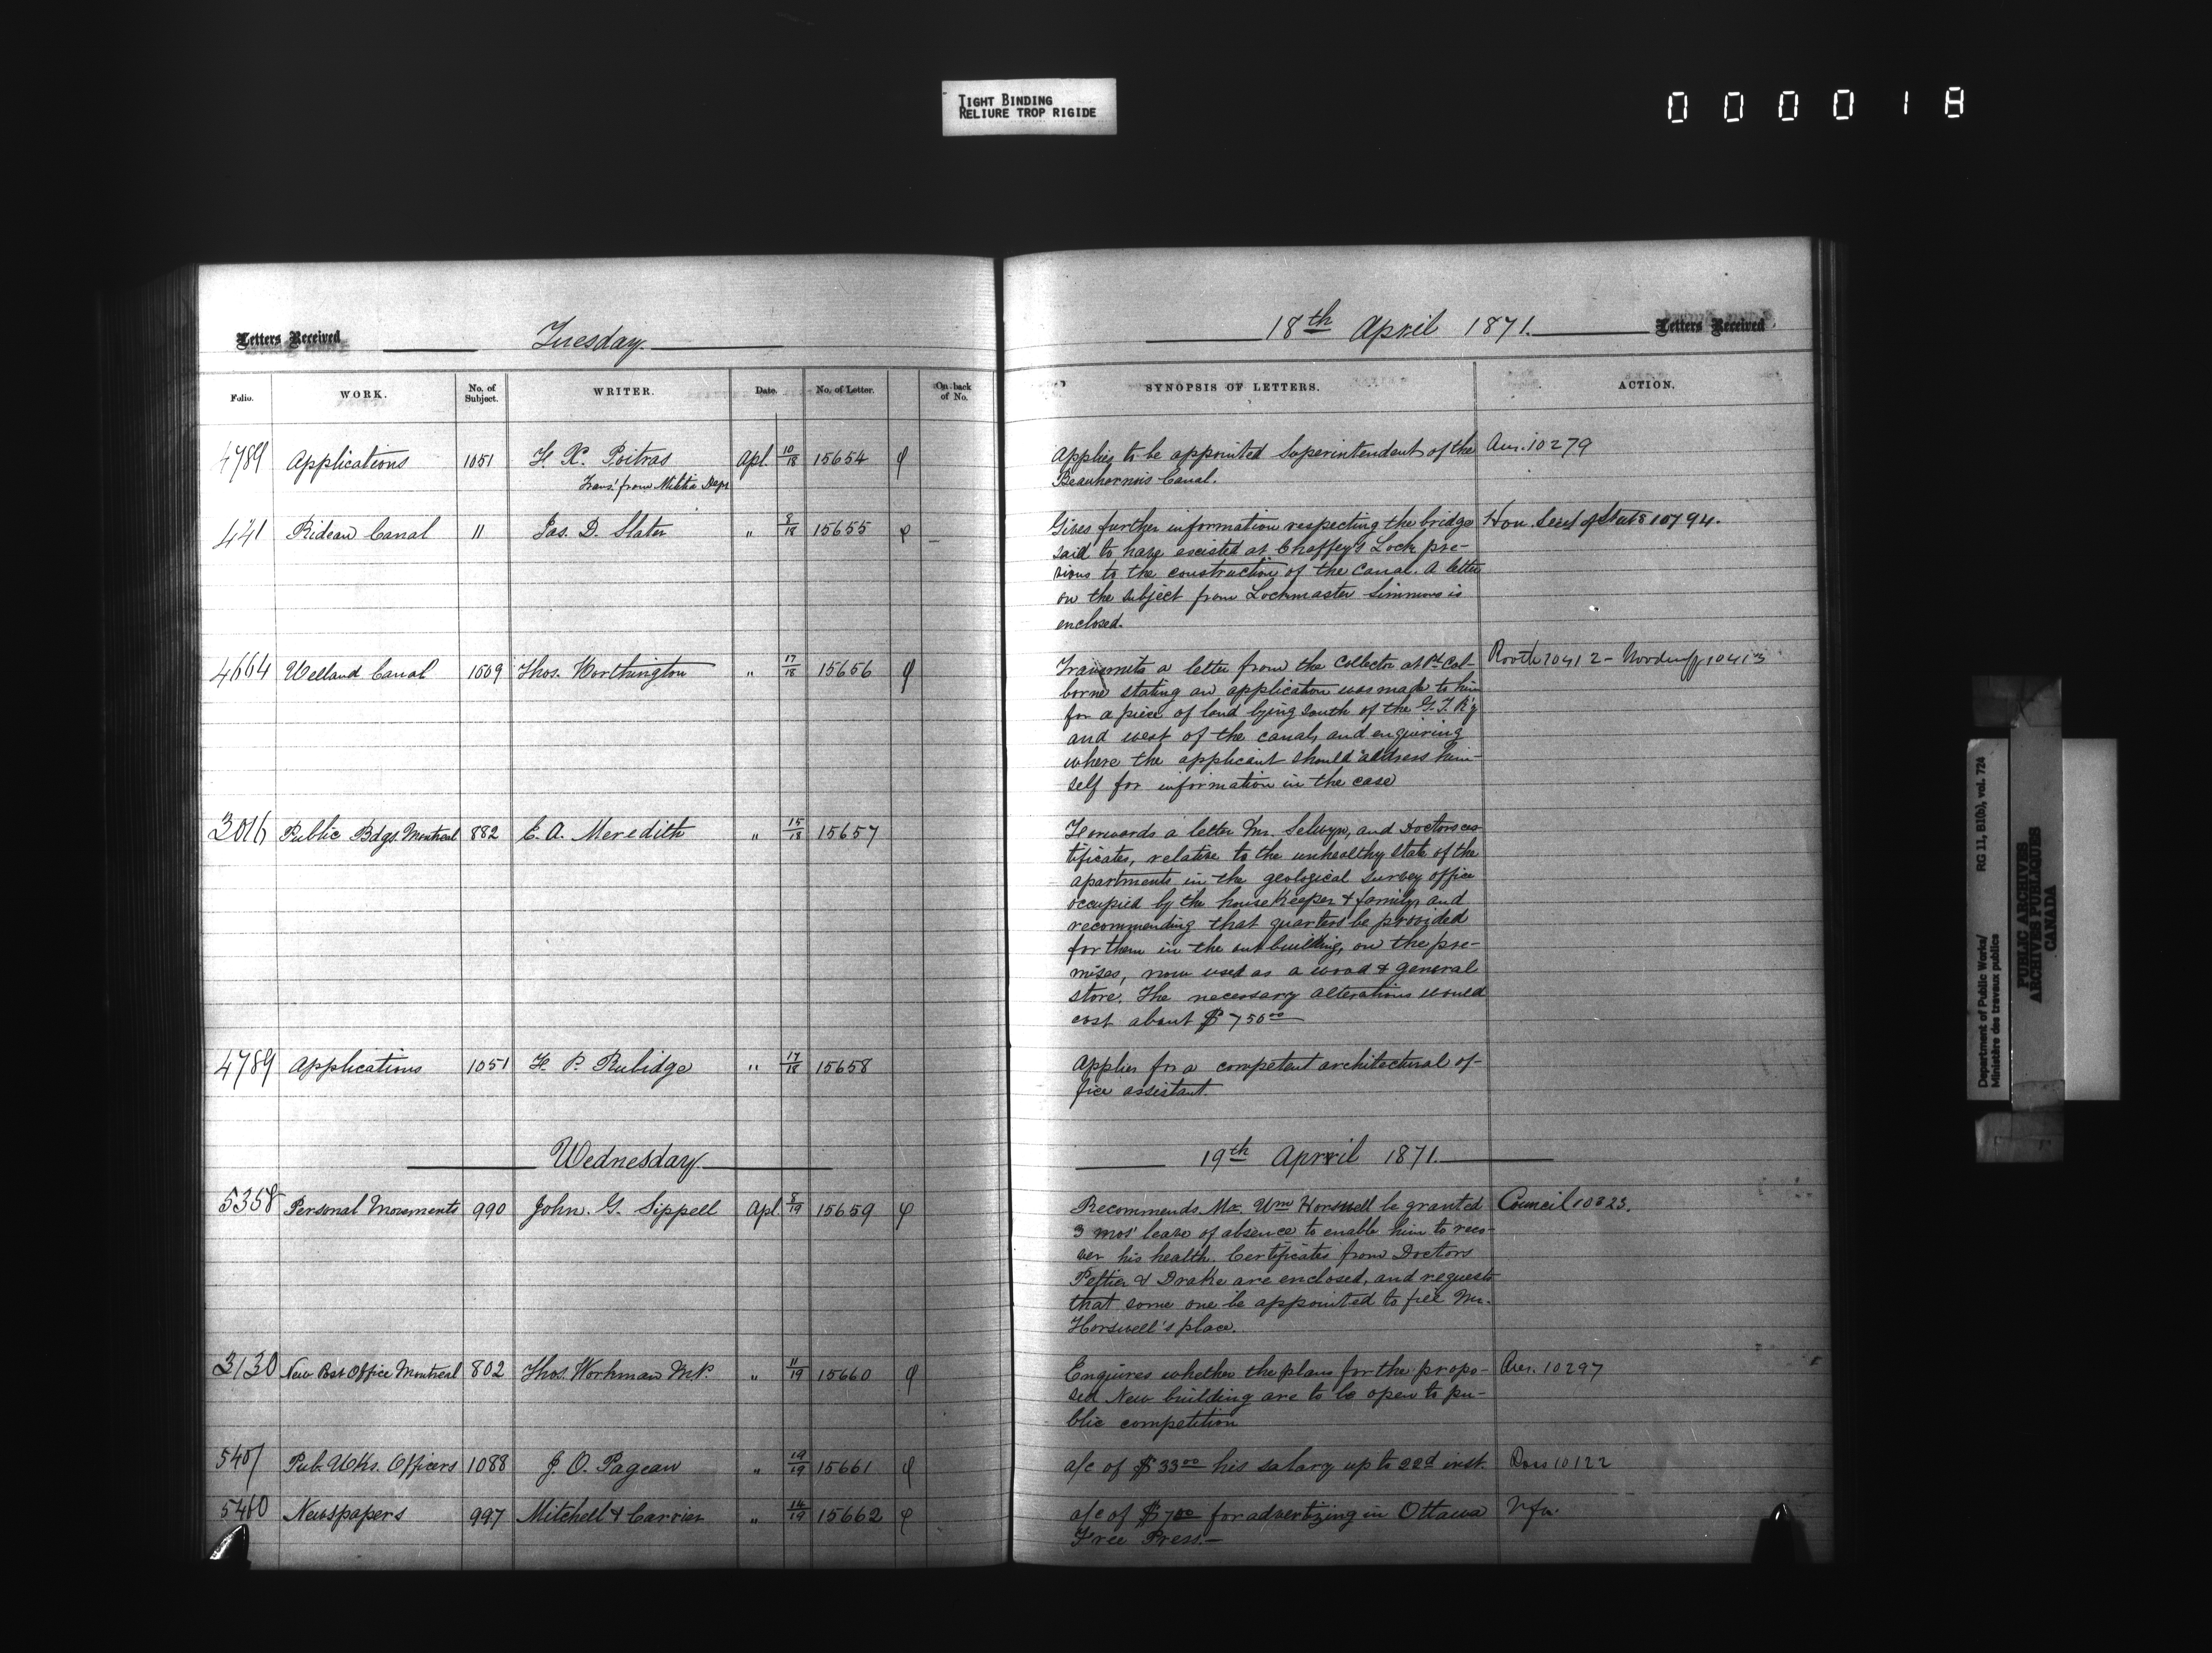 TIGHT BINDING
RELIURE TROP RIGIDE
000018
Letters Received
Tuesday
18th April 1871.
Letters Received
Folio.
WORK.
No. of Subject.
WRITER.
Date.
No. of Letter.
On back of No.
SYNOPSIS OF LETTERS.
ACTION.
4789 Applications 1051 F. X. Poitras Apl. 10/18 15654 φ
Trans. from Militia Dept
Applies to be appointed Superintendent of the Ans. 10279
Beauharnois Canal.
441 Rideau Canal 11 Jas. D. Slater " 8/18 15655 φ
Gives further information respecting the bridge Hon. Secy of State 10794.
said to have existed at Chaffey's Lock pre-
vious to the construction of the Canal. A letter
on the subject from Lockmaster Simmons is
enclosed.
4664 Welland Canal 1009 Thos. Worthington " 17/18 15656 φ
Transmits a letter from the Collector at Pt Col- 10412 - Woodruff 10413
borne stating an application was made to him
for a piece of land lying south of the G. T. R'y
and west of the canal, and enquiring
where the applicant should address him-
self for information in the case
3016 Public Bdgs Montreal 882 E. A. Meredith " 15/18 15657
Forwards a letter Mr. Selwyn, and Doctors cer
tificates, relative to the unhealthy state of the
apartments in the geological survey office
occupied by the housekeeper & family, and
recommending that quarters be provided
for them in the out building, on the pre-
mises, now used as a wood & general
store. The necessary alterations would
cost about $750 00
4789 Applications 1051 F. P. Rubidge " 17/18 15658
Applies for a competent architectural of-
fice assistant.
Wednesday
19th April 1871.
5358 Personal Movements 990 John. G. Sippell Apl. 8/19 15659 φ
Recommends Mr. Wm Horswell be granted Council 10323.
3 mos' leave of absence to enable him to reco-
ver his health. Certificates from Doctors
Peltier & Drake are enclosed, and requests
that some one be appointed to fill Mr.
Horswell's place.
3130 New Post Office Montreal 802 Thos. Workman M.P. " 11/19 15660 φ
Enquires whether the plans for the propo- Ans. 10297
sed New building are to be open to pu-
blic competition
Pub. Wks. Officers 1088 J. O. Pageau " 19/19 15661 φ
a/c of $33 00 his salary up to 22d inst. 10122
5460 Newspapers 997 Mitchell & Carrier " 14/19 15662 φ
a/c of $7 00 for advertizing in Ottawa
Free Press.—
Department of Public Works/ RG 11, B1(b), vol. 724
Ministère des travaux publics
PUBLIC ARCHIVES
ARCHIVES PUBLIQUES
CANADA